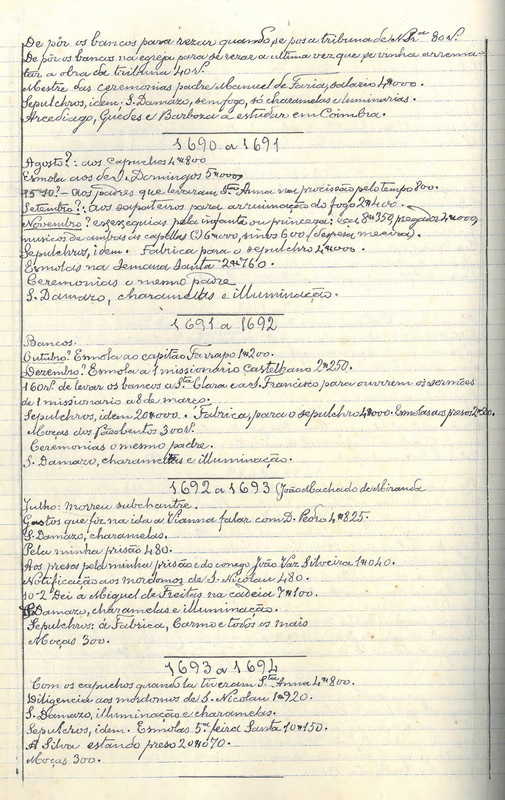 De pôr os bancos para rezar quando se pos a tribuna de N. Srª 80 rˢ.
De pôr os bancos na egreja para se rezar a ultima vez que se vinha arrema-
tar a obra da tribuna 40 rˢ.
Mestre das ceremonias padre Manuel de Faria, salario 4#000.
Sepulchros, idem; S. Damazo, sem fogo, só charamelas e luminarias.
Arcediago, Guedes e Barboza a estudar em Coimbra.
1690 a 1691
Agosto?: aos capuchos 4#800
Esmola aos de S. Domingos 5#000
aos padres que levaram Stª Anna na procissão pelo tempo 800.
Setembro?: aos sapateiros para arrumação do fogo 2#400.
Novembro? exequias pela infanta ou princeza: 8#350, pregador 2#000,
musicos de ambas as capellas (?) 6#000, sinos 600 (despesa meeira).
Sepulchros, idem. Fabrica para o sepulchro 4#000.
Esmolas na Semana Santa 2#760.
Ceremonias o mesmo padre
S. Damazo, charamellas e illuminação.
1691 a 1692
Bancos.
Outubro? Esmola ao capitão Farrapo 1#200.
Dezembro? Esmola a 1 missionario Castelhano 2#250.
160 rˢ. de levar os bancos a Stª Clara e a S. Francisco para ouvirem os sermões
de 1 missionario a 8 de março.
Sepulchros, idem 20#000. Fabrica, para o sepulchro 4#000. Esmolas aos presos
Moças dos 300 rˢ.
Ceremonias o mesmo padre.
S. Damazo, charamellas e illuminação.
1692 a 1693 (João Machado de Miranda
Julho: morreu subchantre.
Gastos que fiz na ida a Vianna falar com D. Pedro 4#825.
S. Damazo, charamelas.
Pela minha prisão 480.
Aos presos pela minha prisão e do conego João Vaz Silveira 1#040.
Notificação aos mordomos de S. Nicolau 480.
10-2 Dei a Miguel de Freitas na cadeia 7#100.
S. Damazo, charamelas e illuminação.
Sepulchros: á Fabrica, Carmo e todos os mais
Moças 300.
1693 a 1694
Com os capuchos quando la tiveram Stª Anna 4#800.
Diligencia aos mordomos de S. Nicolau 1#920.
S. Damazo, illuminação e charamelas.
Sepulcros, idem. Esmolas 5ª feira Santa 10#150.
A Silva estando preso 20#070.
Moças 300.